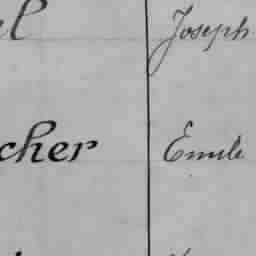 el Joseph
cher Emile